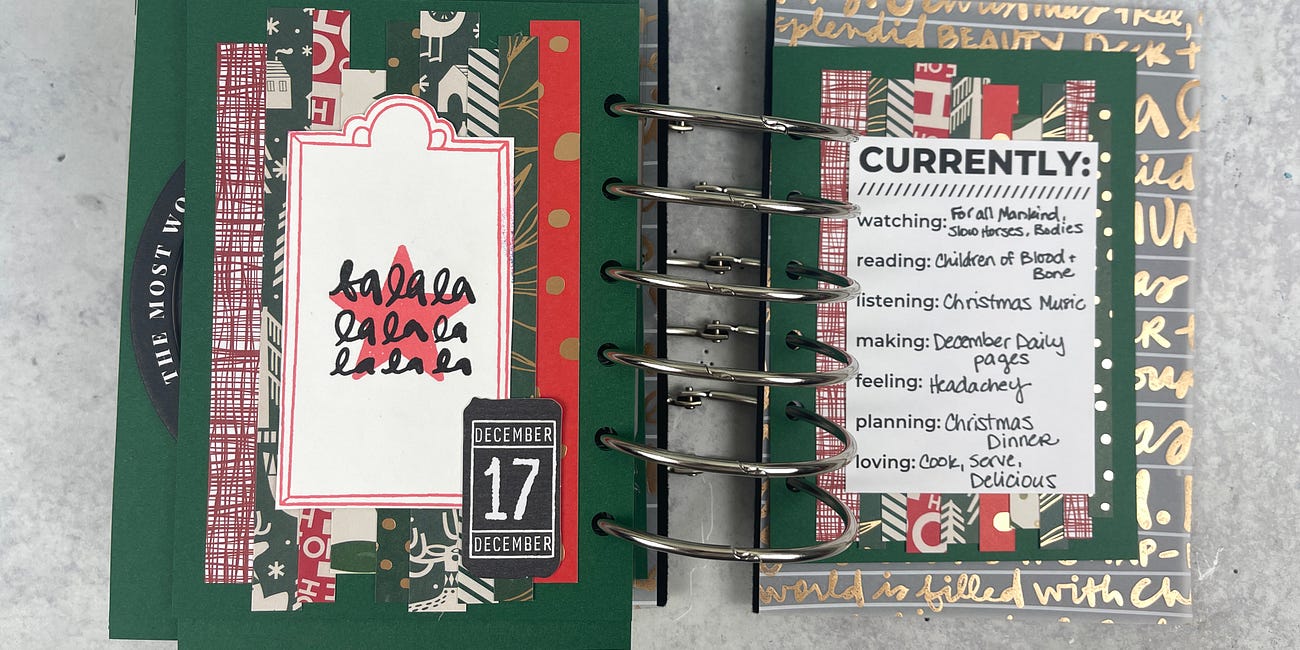 THE MOST WO
fa la la la
la la la la
la la la la
DECEMBER
17
DECEMBER
Christmas tree,
splendid BEAUTY. Deck t
HO
CURRENTLY:
watching: For all Mankind,
Slow Horses, Bodies
reading: Children of Blood +
Bone
listening: Christmas Music
making: December Daily
pages
feeling: Headachey
planning: Christmas
Dinner
loving: Cook, Serve,
Delicious
world is filled with Ch